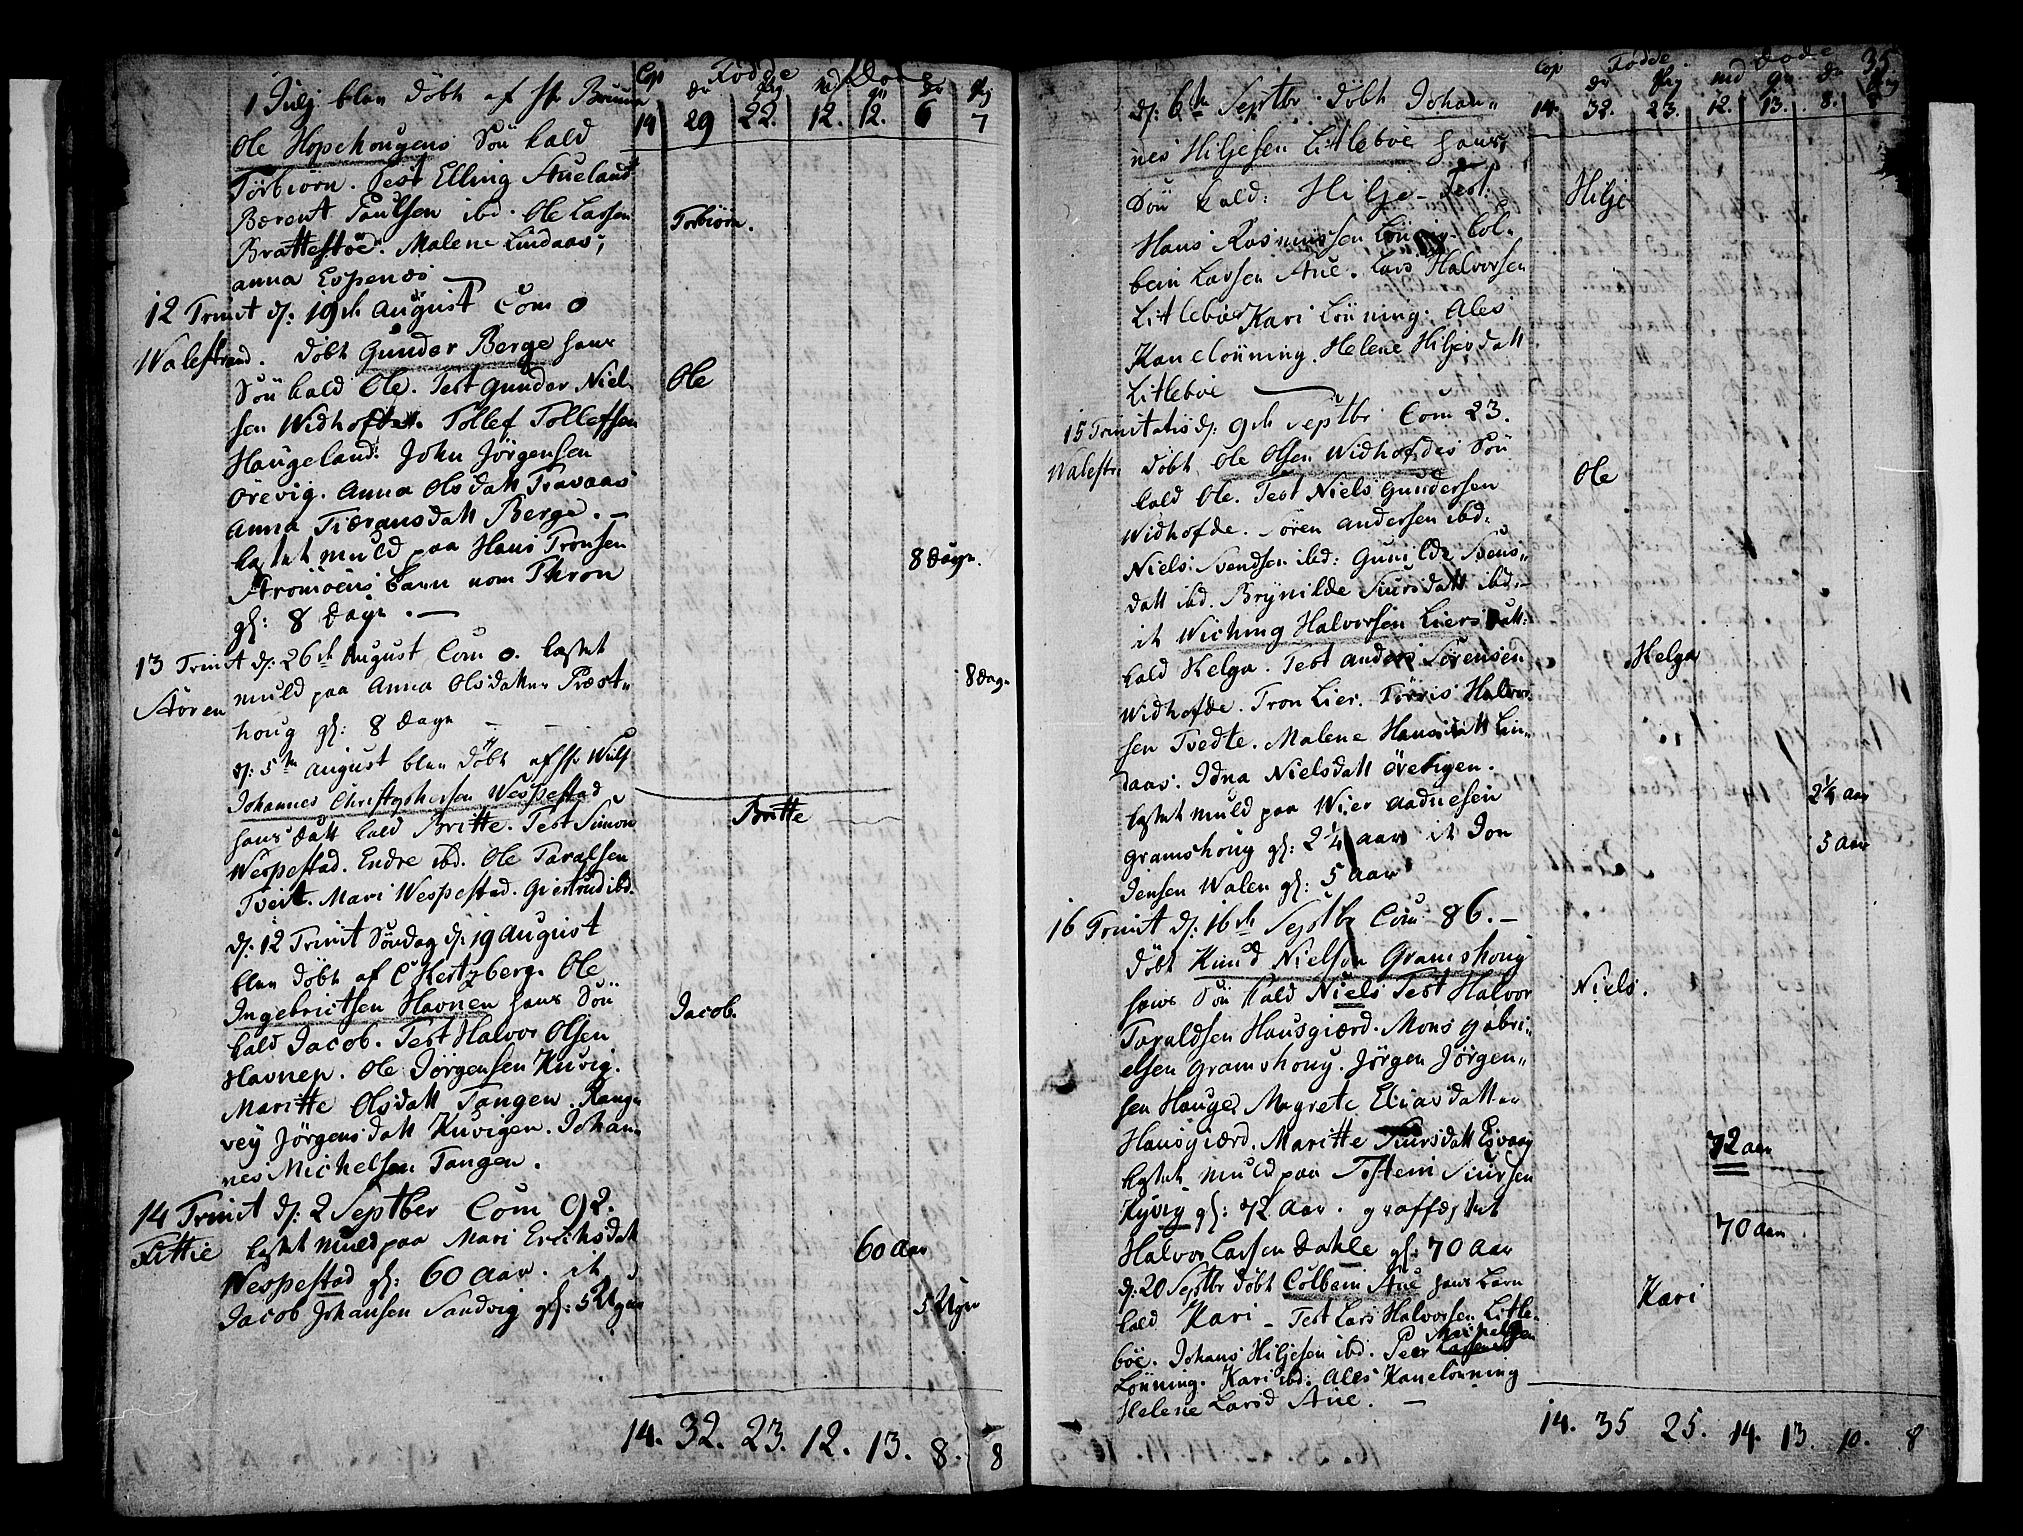 Cop Fødde Døde
dr pig md qu dr pig
14 29 22. 12. 12. 6 7
1 Julj blev døbt af Hr Bruun
Ole Hopehougens Søn kald
Torbiørn. Test Elling Aueland
Berent Paulsen ibd. Ole Larsen
Torbiørn.
Brattestöe. Malene Lindaas,
anna Espenes
12 Trinit d: 19de August Com 0
Walestrand. døbt Gunder Berge hans
Søn kald Ole. Test gunder Niel-
Ole
sen Widhofde. Tollef Tollefsen
Haugeland. John Jörgensen
Örevig. Anna Olsdatt Travaas
Anna Tiæransdatt Berge. —
kastet muld paa Hans Tronsen
8 Dage.
Stromøens barn nom Thron
gl: 8 Dage. —
13 Trinit d: 26de August Com 0. kastet
Støren muld paa Anna Olsdatter Præst-
8 Dage
houg gl: 8 Dage
d: 5te august blev døbt af Hr Wulf
Johannes Christophersen Wespestad
hans datt kald Britte. Test Simon
Britte
Wespestad. Endre ibd. Ole Taralsen
Tveit. Mari Wespestad. Giertrud ibd.
d: 12 Trinit Søndag d: 19 August
blev døbt af C Hertzberg. Ole
Ingebrictsen Havnen hans Søn
Jacob.
kald Jacob. Test Halvor Olsen
Havnen. Ole Jörgensen Kuvig.
Maritte Olsdatt Tangen. Rang-
vey Jörgensdatt Kuvigen. Johan-
nes Michelsen Tangen.
14 Trinit d: 2 Septber Com 92.
Fittie kastet muld paa Mari Erichsdatt
60 Aar
Wespestad gl: 60 Aar. it
Jacob Johansen Sandvig gl: 5 Uger
5 Uger
14. 32. 23. 12. 13. 8. 8
35
Cop Fødde Døde
dr pig md qu dr pig
14. 32. 23. 12. 13. 8. 8
d: 6te Septbr. døbt Johan-
nes Hiljesen Litleböe hans
Søn kald: Hilje - Test:
Hilje
Hans Rasmussen Lönning. Col-
bein Larsen Aue. Lars Halvorsen
Litleböe Kari Lönning. Ales
Kanelönning. Helene Hiljesdatt
Litleböe
15 Trinitatis d: 9de Septbr Com 23.
Walestr. døbt Ole Olsen Widhofdes Søn
Ole
kald Ole. Test Niels Gundersen
Widhofde. Sören andersen ibd:
Niels Svendsen ibd: Gunilde Svens-
datt ibd. Brÿnilde Siursdatt ibd:-
it Wiching Halvorsen Liers datt:
kald Helga. Test anders Sörensen
Helga
Widhofde. Tron Lier. Törris Halvor-
sen Tvedte. Malene Hansdatt Lin-
daas. Idna Nielsdatt Örevigen.
kastet muld paa Wier Aadnesen
2¼ aar
Gramshoug gl: 2¼ aar it Jon
5 aar
Jensen Walen gl: 5 Aar
16 Trinit d: 16de Septbr Com 86. —
døbt Knud Nielsen Gramshoug
hans Søn kald Niels Test Halvor
Niels.
Taraldsen Hausgiærd. Mons gabri-
elsen Gramshoug. Jörgen Jörgen-
sen Hauge. Magrete Eliasdatter
Hausgiærd. Maritte Siursdatt Esvaag
kastet muld paa Tostein Siursen
72 aar
Kyvig gl: 72 Aar. graffæstet
Halvor Larsen Dahle gl: 70 Aar
70 aar
d: 20 Septbr døbt Colbein Aue hans barn
kald Kari — Test Lars Halvorsen Litle-
Kari
böe. Johans Hiljesen ibd. Peer
Lönning. Kari ibd: Ales Kanelönning
Helene Larsd Aue. —
14. 35 25. 14. 13. 10. 8